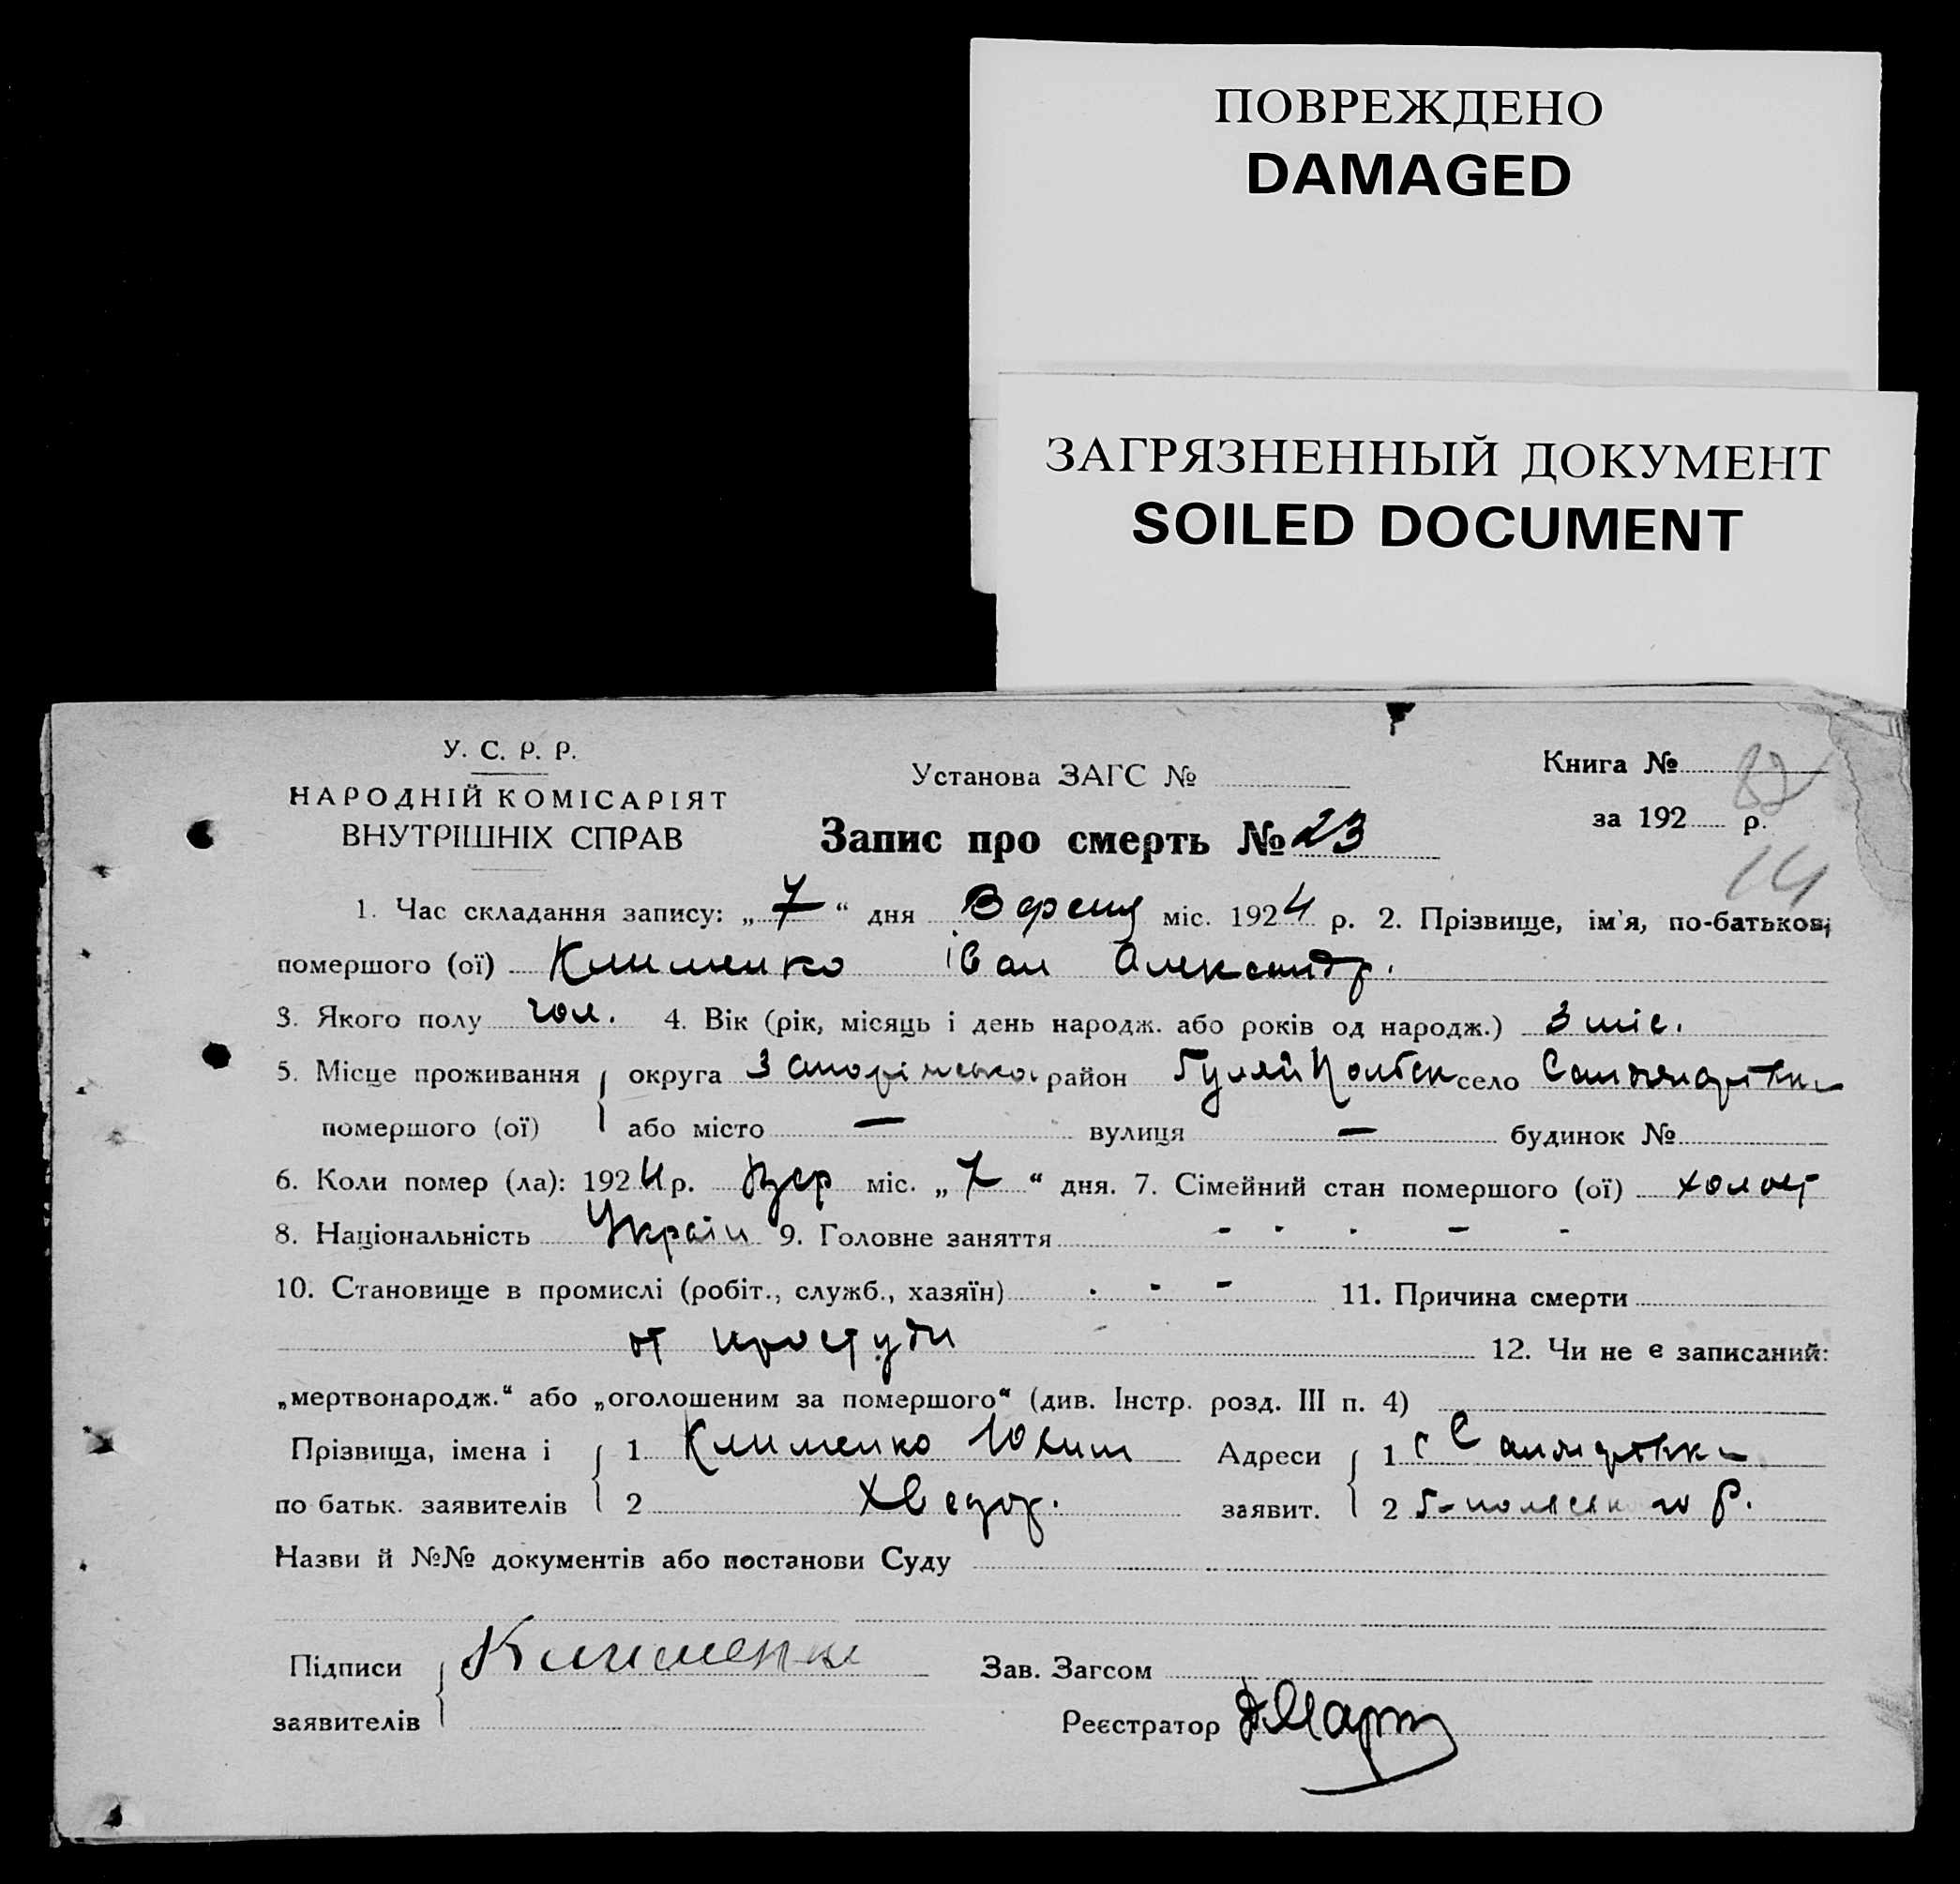 ПОВРЕЖДЕНО
DAMAGED
ЗАГРЯЗНЕННЫЙ ДОКУМЕНТ
SOILED DOCUMENT
У. С. Р. Р.
НАРОДНІЙ КОМІСАРІЯТ
ВНУТРІШНІХ СПРАВ
Установа ЗАГС №
Книга № 82
за 192 р.
14
Запис про смерть № 23
1. Час складання запису: „ 7 “ дня міс. 1924 р. 2. Прізвище, ім'я, по-батькові
помершого (ої) Клименко Іван Александр.
3. Якого полу чол. 4. Вік (рік, місяць і день народж. або років од народж.) 3 міс.
5. Місце проживання округа район село
помершого (ої) або місто — вулиця — будинок №
6. Коли помер (ла): 1924 р. Вер міс. „ 7 “ дня. 7. Сімейний стан помершого (ої) холост
8. Національність Україн 9. Головне заняття - - - - -
10. Становище в промислі (робіт., служб., хазяїн) - - - 11. Причина смерти
от простуди 12. Чи не є записаний:
„мертвонародж.“ або „оголошеним за помершого“ (див. Інстр. розд. III п. 4)
Прізвища, імена і 1 Клименко Адреси 1 с
по батьк. заявителів 2 Хведор. заявит. 2 р.
Назви й №№ документів або постанови Суду
Підписи Клименко Зав. Загсом
заявителів Реєстратор